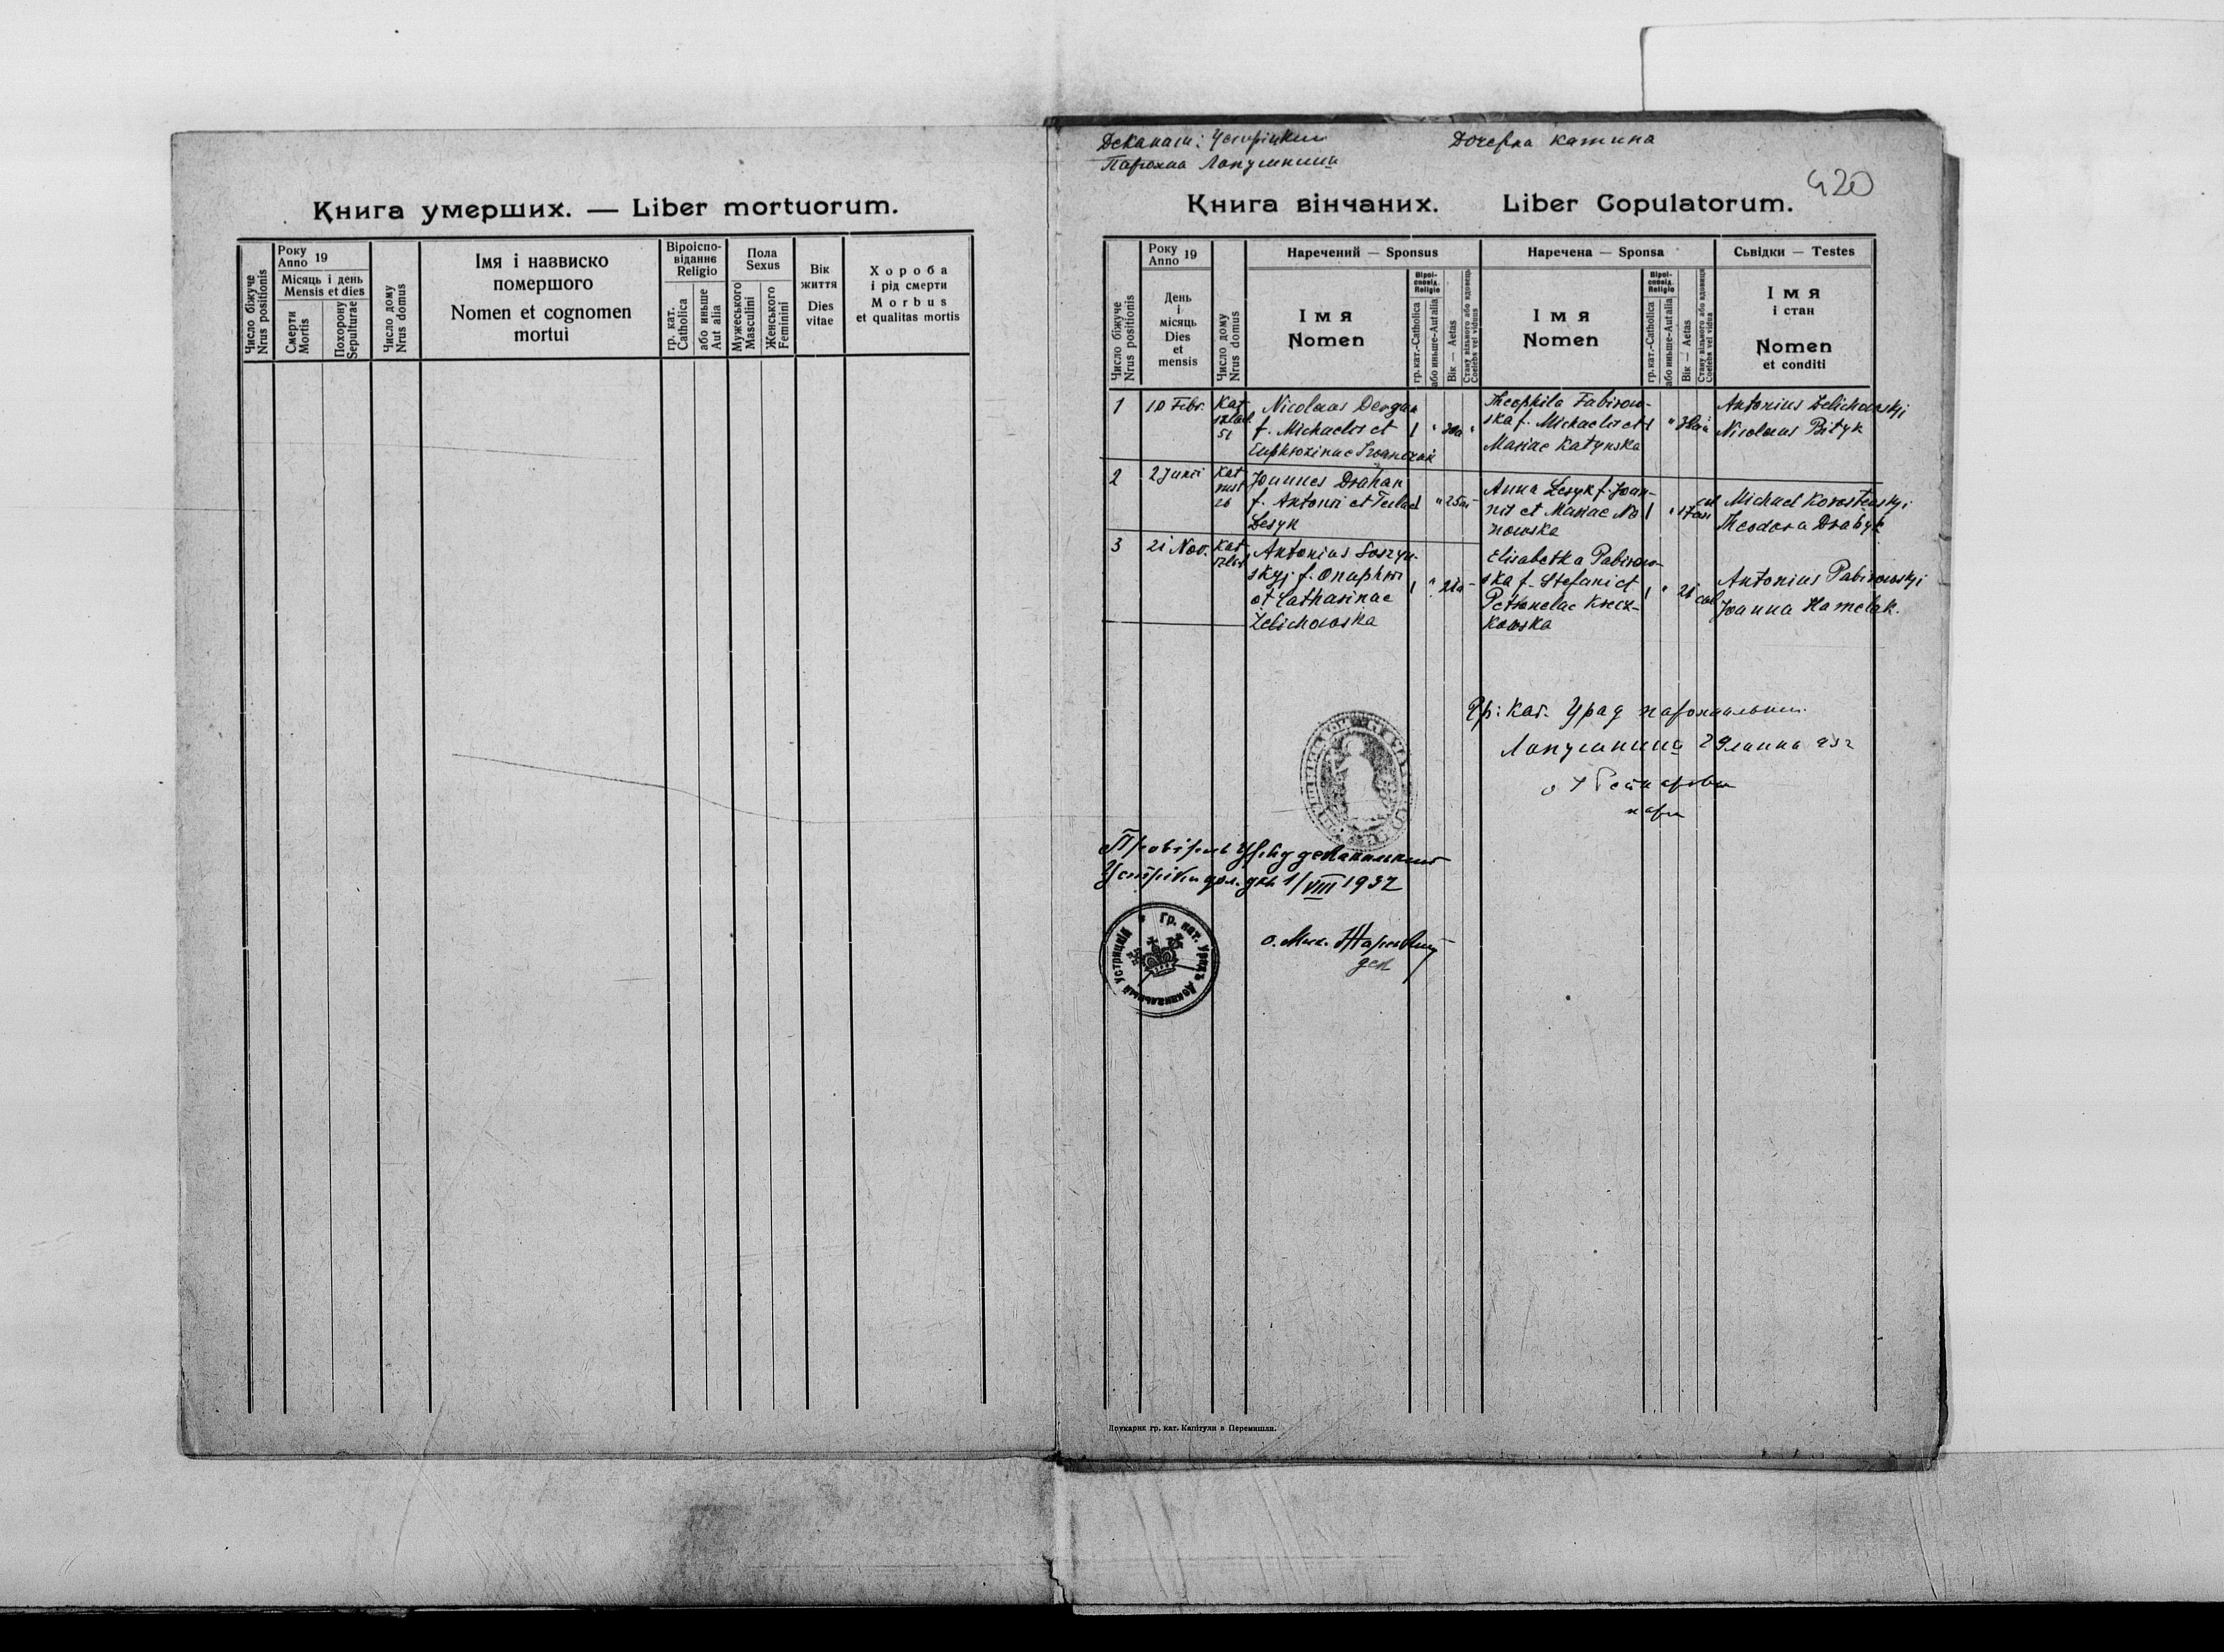 Книга умерших. — Liber mortuorum.
Число біжуче
Nrus positionis
Року
Anno 19
Місяць і день
Mensis et dies
Смерти
Mortis
Похорону
Sepulturae
Число дому
Nrus domus
Імя і назвиско
помершого
Nomen et cognomen
mortui
Віроіспо-
віданнє
Religio
гр. кат.
Catholica
або иньше
Aut alia
Пола
Sexus
Мужеського
Masculini
Женського
Feminini
Вік
життя
Dies
vitae
Хороба
і рід смерти
Morbus
et qualitas mortis
Деканат: Устріцкий
Парохия Лопушниця
Дочерна
420
Книга вінчаних. Liber Copulatorum.
Число біжуче
Nrus positionis
Року
Anno 19
День
і
місяць
Dies
et
mensis
Число дому
Nrus domus
Наречений — Sponsus
Імя
Nomen
Віроі-
сповід.
Religio
гр. кат.-Catholica
або иньше-Aut alia
Вік — Aetas
Стану вільного або вдовець
Coelebs vel viduus
Наречена — Sponsa
Імя
Nomen
Віроі-
сповід.
Religio
гр. кат.-Catholica
або иньше-Aut alia
Вік — Aetas
Стану вільного або вдовиця
Coelebs vel vidua
Сьвідки — Testes
Імя
і стан
Nomen
et conditi
1 10 Febr. 51
Nicolaus Dergan
f. Michaelis et
Euphrozinae Iwanczak
Theophila Fabirow-
ska f. Michaelis et
Mariae Katynska
Antonius Zelichowskyj
Nicolaus Bityk
2 2 Junii 26
Joannes Drahan
f. Antonii et Teclae
Lesyk
25
Anna Lesyk f. Joan-
nis et Mariae No-
nowska
17
Michael Korostenskyj
Theodora Drabyk
3 21 Nov.
Antonius Soszyn-
skyj f. Onuphrii
et Catharinae
Zelichowska
Elisabetha Pabirow-
ska f. Stefani et
Petronelae Krecz-
kowska
21 cael
Antonius Pabirowskyj
Joanna Hamelak.
Гр. кат. Уряд парохіальний
Лопушниця
Провірив Уряд деканальний
Устріки дол. дня 1/VIII 1932
Гр. кат. Урядъ Деканальный Устрицкій
о. Мих.
дек
Друкарня гр. кат. Капітули в Перемишли.